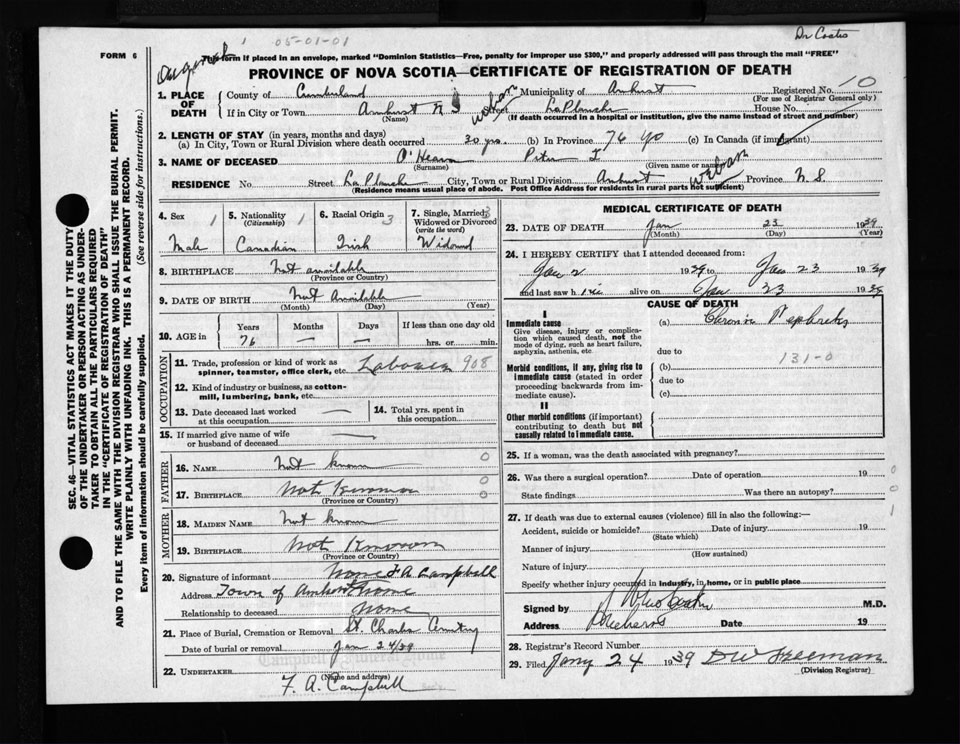 Dr Coates
05-01-01
FORM 6
This form if placed in an envelope, marked "Dominion Statistics—Free, penalty for improper use $300," and properly addressed will pass through the mail "FREE"
PROVINCE OF NOVA SCOTIA—CERTIFICATE OF REGISTRATION OF DEATH
1. PLACE OF DEATH
County of Cumberland Municipality of Amherst Registered No. 10
(For use of Registrar General only)
If in City or Town Amherst N S (Name) urban Street LaPlanche House No.
(If death occurred in a hospital or institution, give the name instead of street and number)
2. LENGTH OF STAY (in years, months and days)
(a) In City, Town or Rural Division where death occurred 30 yrs. (b) In Province 76 yo (c) In Canada (if immigrant)
3. NAME OF DECEASED O'Hearn Peter
(Surname) (Given name or names)
RESIDENCE No. Street LaPlanche City, Town or Rural Division Amherst urban Province N. S
(Residence means usual place of abode. Post Office Address for residents in rural parts not sufficient)
4. Sex 1
Male
5. Nationality 1
(Citizenship)
Canadian
6. Racial Origin 3
Irish
7. Single, Married, Widowed or Divorced
(write the word)
Widowed
8. BIRTHPLACE Not available
(Province or Country)
9. DATE OF BIRTH Not Available
(Month) (Day) (Year)
10. AGE in Years Months Days If less than one day
76 — — hrs. or min.
OCCUPATION
11. Trade, profession or kind of work as spinner, teamster, office clerk, etc. Laborer 908
12. Kind of industry or business, as cotton-mill, lumbering, bank, etc.
13. Date deceased last worked at this occupation —
14. Total yrs. spent in this occupation
15. If married give name of wife or husband of deceased —
FATHER
16. NAME Not known 0
17. BIRTHPLACE Not Known 0
(Province or Country) 0
MOTHER
18. MAIDEN NAME Not known
19. BIRTHPLACE Not Known
(Province or Country)
20. Signature of informant None F A Campbell
Address Town of Amherst Home
Relationship to deceased None
21. Place of Burial, Cremation or Removal St. Charles Cemetery
Date of burial or removal Jan 24/39
Campbell Funeral Home
22. UNDERTAKER
(Name and address)
F. A. Campbell
MEDICAL CERTIFICATE OF DEATH
23. DATE OF DEATH Jan 23 1939
(Month) (Day) (Year)
24. I HEREBY CERTIFY that I attended deceased from:
Jan 2 1939 to Jan 23 1939
and last saw h im alive on Jan 23 1939
CAUSE OF DEATH
I
Immediate cause
Give disease, injury or complication which caused death, not the mode of dying, such as heart failure, asphyxia, asthenia, etc.
(a) Chronic Nephritis
due to
131-0
Morbid conditions, if any, giving rise to immediate cause (stated in order proceeding backwards from immediate cause).
(b)
due to
(c)
II
Other morbid conditions (if important) contributing to death but not causally related to immediate cause.
25. If a woman, was the death associated with pregnancy?
26. Was there a surgical operation? Date of operation 19 0
State findings Was there an autopsy? 0
27. If death was due to external causes (violence) fill in also the following:— 1
Accident, suicide or homicide? Date of injury 19
(State which)
Manner of injury
(How sustained)
Nature of injury
Specify whether injury occurred in industry, in home, or in public place
Signed by M.D.
Address Amherst Date 19
28. Registrar's Record Number
29. Filed Jany 24 1939 D W Freeman
(Division Registrar)
SEC. 46—VITAL STATISTICS ACT MAKES IT THE DUTY
OF THE UNDERTAKER OR PERSON ACTING AS UNDER-
TAKER TO OBTAIN ALL THE PARTICULARS REQUIRED
IN THE "CERTIFICATE OF REGISTRATION OF DEATH"
AND TO FILE THE SAME WITH THE DIVISION REGISTRAR WHO SHALL ISSUE THE BURIAL PERMIT.
WRITE PLAINLY WITH UNFADING INK. THIS IS A PERMANENT RECORD.
Every item of information should be carefully supplied. (See reverse side for instructions.)